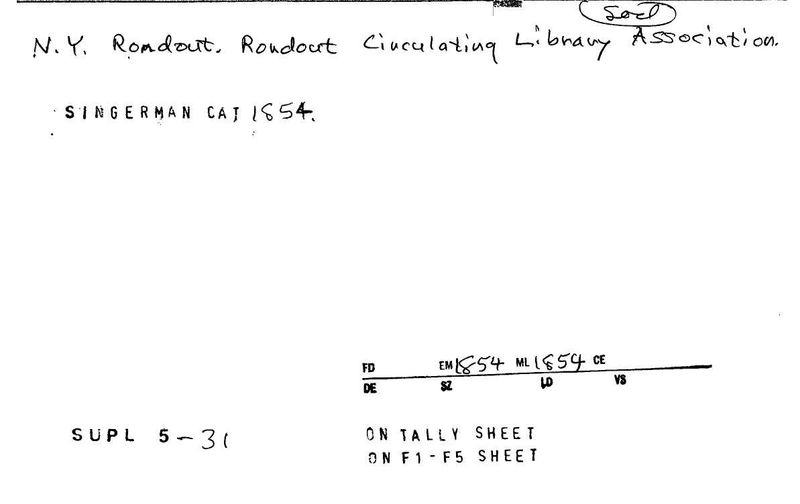 Socl
N.Y. Rondout. Rondout Circulating Library Association.
SINGERMAN CAT 1854.
FD EM 1854 ML 1854 CE
DE SZ LD VS
SUPL 5-31
ON TALLY SHEET
ON F1-F5 SHEET